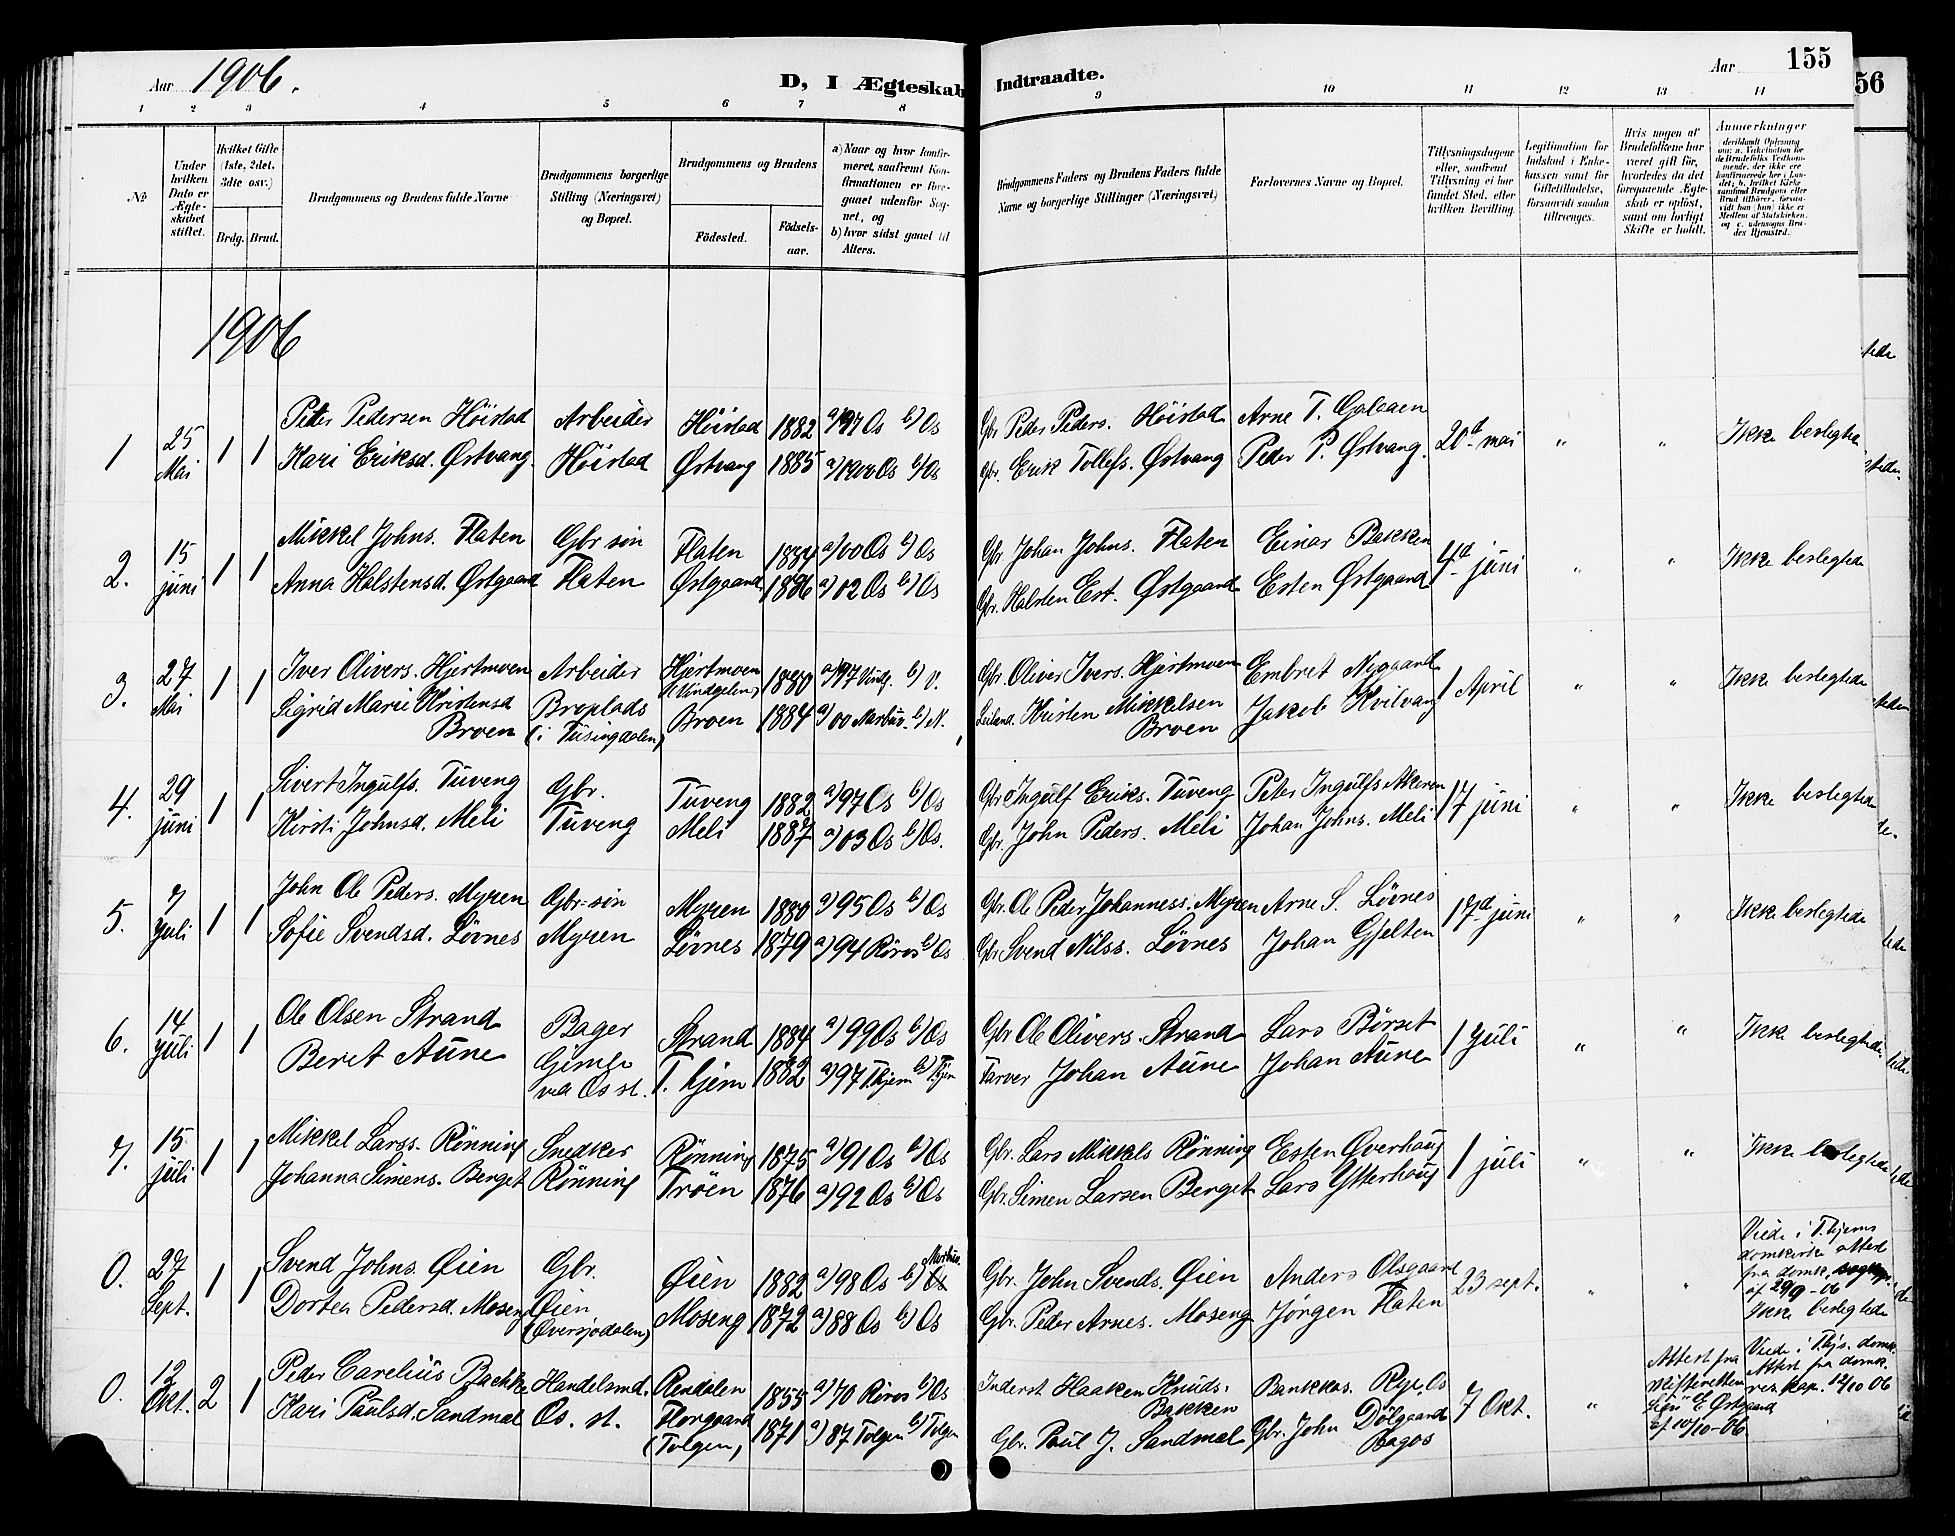 Aar 1906.
D, I Ægteskab Indtraadte.
Aar 155
56
1 2 3 4 5 6 7 8 9 10 11 12 13 14
No
Under hvilken Dato er Ægteskabet stiftet.
Hvilket Gifte (1ste, 2det, 3die osv.)
Brdg. Brud.
Brudgommens og Brudens fulde Navne
Brudgommens borgerlige Stilling (Næringsvei) og Bopæl.
Brudgommens og Brudens
Fødested.
Fødselsaar.
a) Naar og hvor konfirmeret, saafremt Konfirmationen er foregaaet udenfor Sognet, og
b) hvor sidst gaaet til Alters.
Brudgommens Faders og Brudens Faders fulde Navne og borgerlige Stillinger (Næringsvei)
Forlovernes Navne og Bopæl.
Tillysningsdagene eller, saafremt Tillysning ei har fundet Sted, efter hvilken Bevilling.
Legitimation for Indskud i Enkekassen samt for Giftetilladelse, forsaavidt saadan tiltrænges.
Hvis nogen af Brudefolkene har været gift før, hvorledes da det foregaaende Ægteskab er opløst, samt om lovligt Skifte er holdt.
Anmærkninger
1906
1 25 Mai 1 1 Peter Pedersen Höistad Arbeider Höistad 1882 a) 97 Os b) Os Gbr Peder Peders. Höistad Arne T. Galaaen 20d mai " " Ikke beslegtede
Kari Eriksd. Østvang. Höistad Østvang 1885 a) 1900 Os b) Os Gbr. Erik Tollefs. Østvang Peder P. Østvang.
2. 15 juni 1 1 Mikkel Johns. Flaten Gbr søn Flaten 1884 a) 00 Os b) Os Gbr Johan Johns. Flaten Einar Bakken 4d juni " " Ikke beslegtede
Anna Halstensd. Østgaard Flaten Østgaard 1886 a) 02 Os b) Os Gbr. Halsten Est. Østgaard Esten Østgaard
3. 27 Mai 1 1 Iver Olivers. Hjertmoen Arbeider Hjertmoen (Vindgelen) 1880 a) 97 Vindg. b) V. Gbr. Oliver Ivers. Hjertmoen Embret Nygaard 1 April " " Ikke beslegtede
Sigrid Marie Kristensd Broen Broplads (i Tusingdalen) Broen 1884 a) 00 Narbuv. b) N. Kristen Mikkelsen Broen Jakob Kvilvang
4. 29 juni 1 1 Sivert Ingulfs. Tuveng Gbr. Tuveng 1882 a) 97 Os b) Os Gbr Ingulf Eriks. Tuveng Peter Ingulfs Akeren 17 juni " " Ikke beslegtede
Kirsti Johnsd. Meli Tuveng Meli 1887 a) 03 Os b) Os. Gbr. John Peders. Meli Johan Johns. Meli
5. 7 juli 1 1 John Ole Peders. Myren Gbr=søn Myren 1880 a) 95 Os b) Os Gbr. Ole Peder Johanness. Myren Arne S. Lövnes 17d juni " " Ikke beslegtede
Sofie Svendsd. Lövnes Myren Lövnes 1879 a) 94 Röros b) Os Gbr Svend Nilss. Lövnes Johan Gjelten
6. 14 juli 1 1 Ole Olsen Strand Bager Strand 1884 a) 99 Os b) Os Gbr Ole Olivers. Strand Lars Börset 1 juli " " Ikke beslegtede
Beret Aune Gimle ved Os st. T. hjem 1882 a) 97 T.hjem b) T.hjem Farver Johan Aune Johan Aune
7. 15 juli 1 1 Mikkel Larss. Rönning Snedker Rönning 1875 a) 91 Os b) Os Gbr. Lars Mikkels Rönning Esten Øverhaug 1 juli " " Ikke beslegtede
Johanna Simens. Berget Rönning Tröen 1876 a) 92 Os b) Os Gbr. Simen Larsen Berget Lars Ytterhaug
0. 27 Sept. 1 1 Svend Johns. Øien Gbr. Øien 1882 a) 98 Os b) Os Gbr. John Svends. Øien Anders Olsgaard 23 sept. " " Viede i T.hjems domkirke attest fra domk. af 29/9-06 Ikke beslegtede
Dortea Pedersd. Moseng Øien (Øversjødalen) Moseng 1872 a) 88 Os b) Os Gbr. Peder Arnes. Moseng Jørgen Flaten
0. 12 Okt. 2 1 Peder Carelius Bakke Handelsmd. Rendalen 1855 a) 70 Röros b) Os Inderst Haaken Knuds. Bakken Bankkas. Ryp, Os 7 Okt. " Attest fra skifteretten E Østgaard af 10/10-06 Viede i Thjs. domk. Attest fra domk. res. kap. 12/10 06
Kari Paulsd. Sandmæl Os. st. Horgaard (Tolgen) 1871 a) 87 Tolgen b) Tolgen Gbr. Paul J. Sandmæl Gbr. John Dölgaard